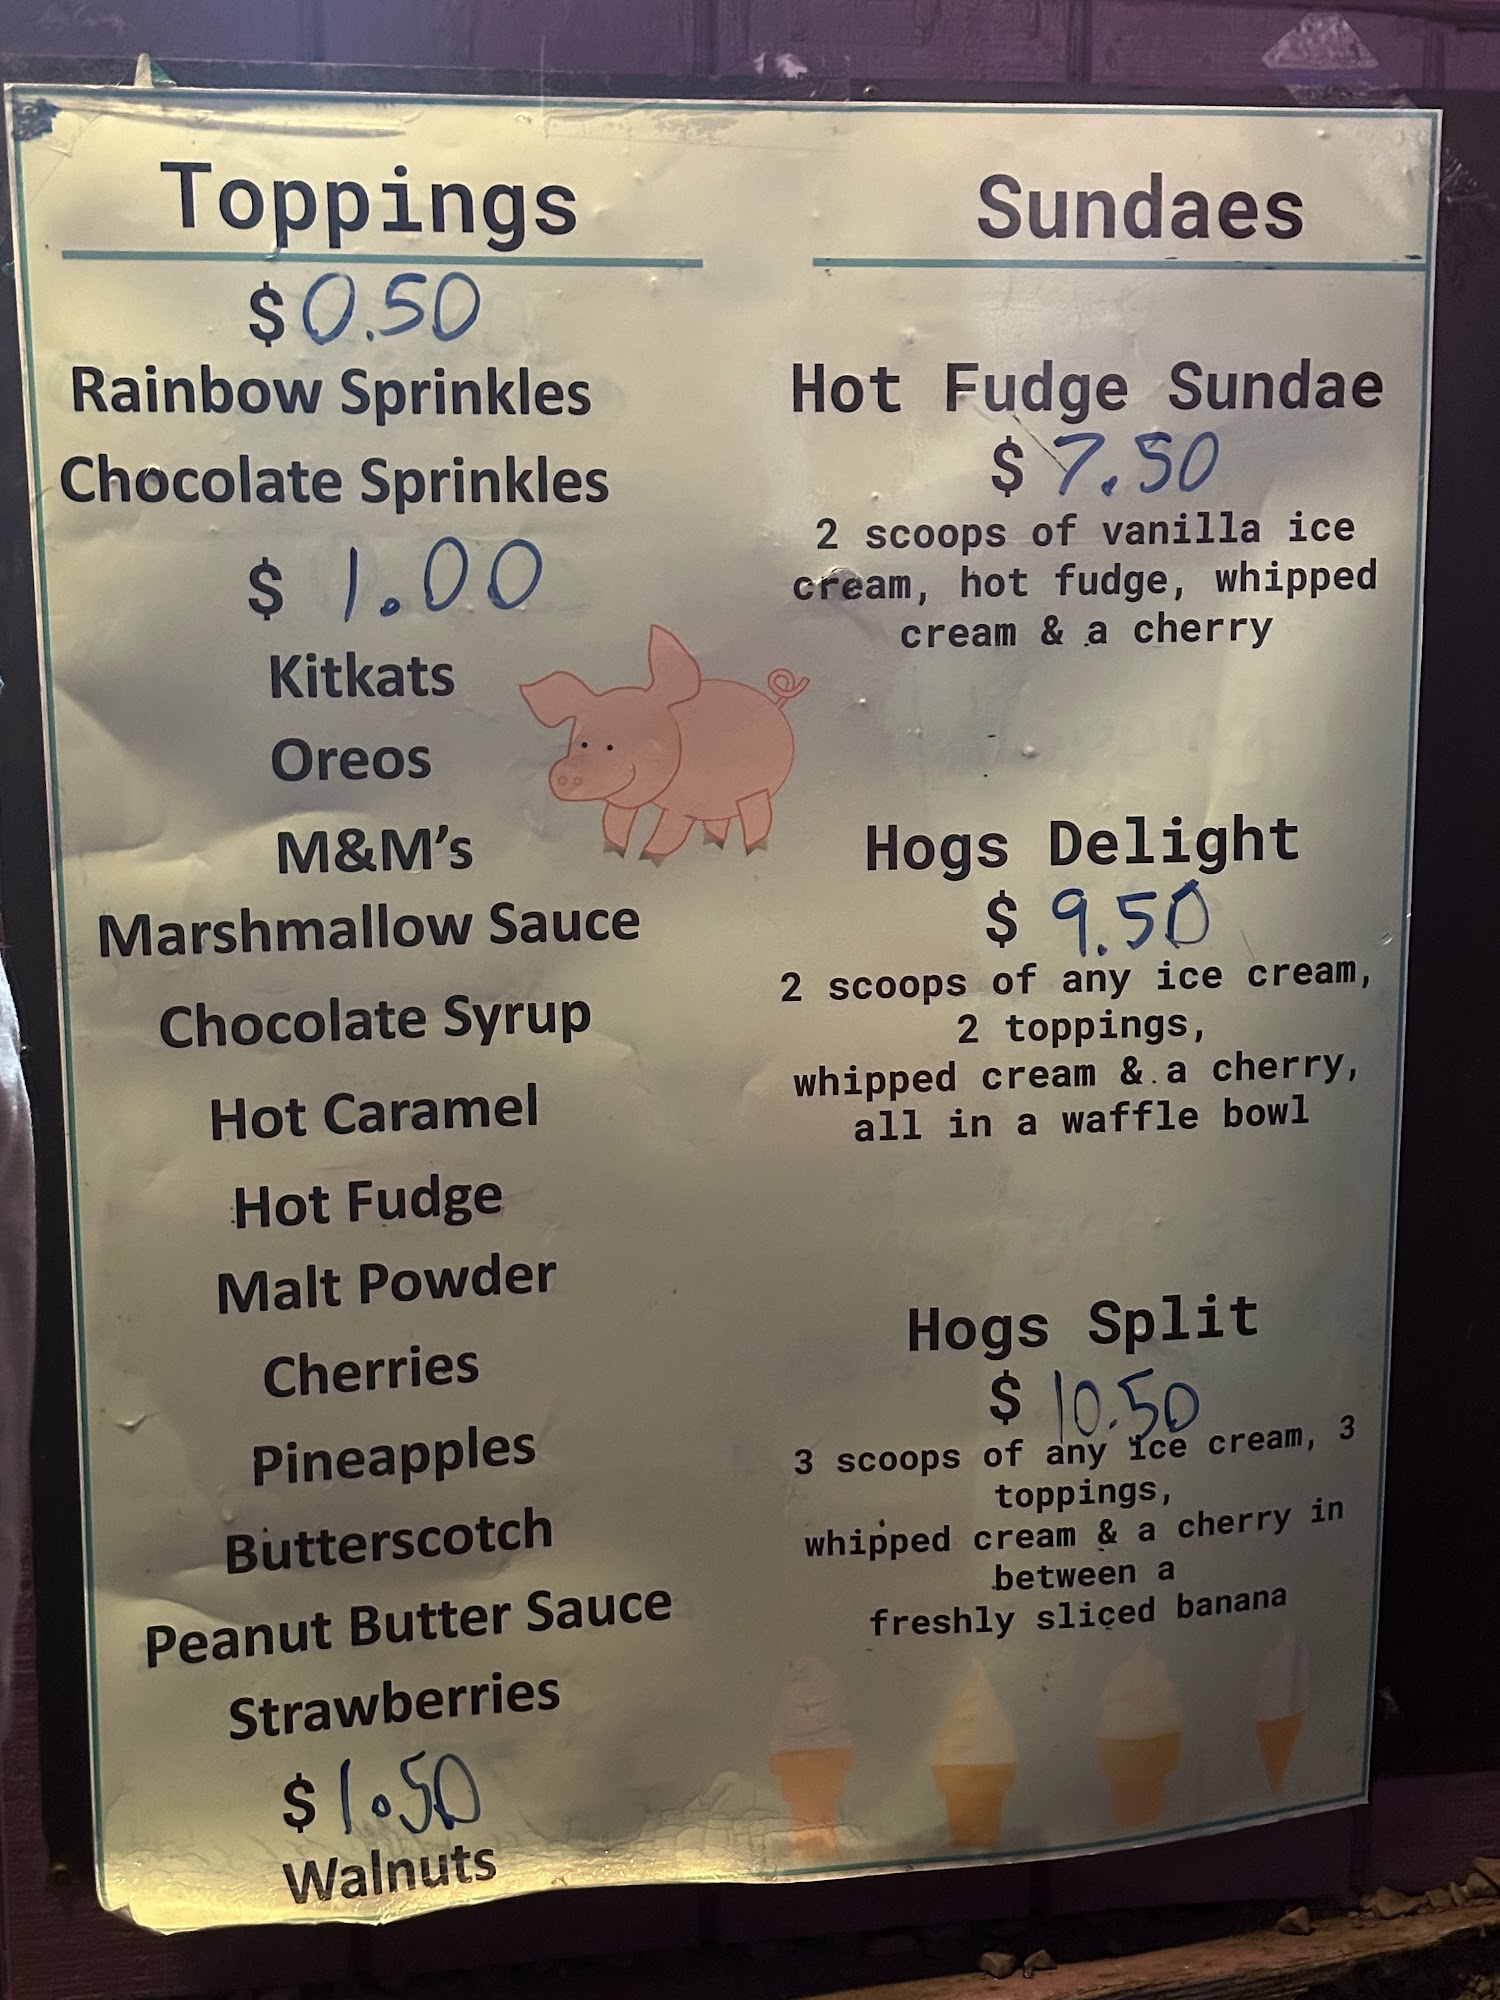 Toppings
$0.50
Rainbow Sprinkles
Chocolate Sprinkles
$ 1.00
Kitkats
Oreos
M&M's
Marshmallow Sauce
Chocolate Syrup
Hot Caramel
Hot Fudge
Malt Powder
Cherries
Pineapples
Butterscotch
Peanut Butter Sauce
Strawberries
$1.50
Walnuts
Sundaes
Hot Fudge Sundae
$ 7.50
2 scoops of vanilla ice
cream, hot fudge, whipped
cream & a cherry
Hogs Delight
$ 9.50
2 scoops of any ice cream,
2 toppings,
whipped cream & a cherry,
all in a waffle bowl
Hogs Split
$ 10.50
3 scoops of any ice cream, 3
toppings,
whipped cream & a cherry in
between a
freshly sliced banana